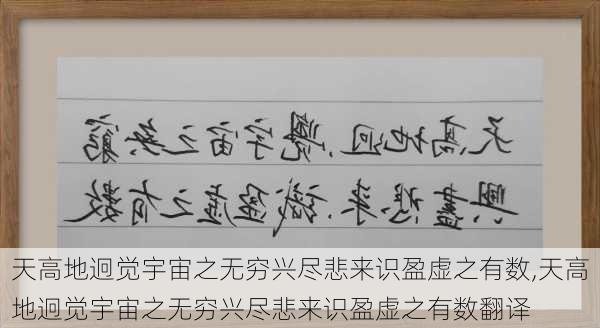 天高地迥覺宇宙之無窮
興盡悲來識盈虛之有數
天高地迥觉宇宙之无穷兴尽悲来识盈虚之有数,天高
地迥觉宇宙之无穷兴尽悲来识盈虚之有数翻译